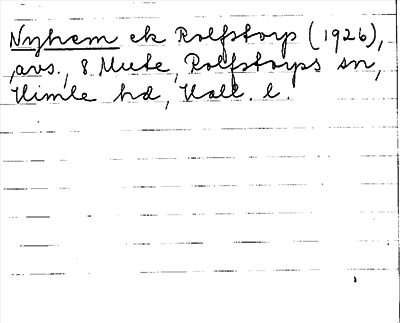 Nyhem ek Rolfstorp (1926),
avs., 8 Mute, Rolfstorps sn,
Himle hd, Hall. l.